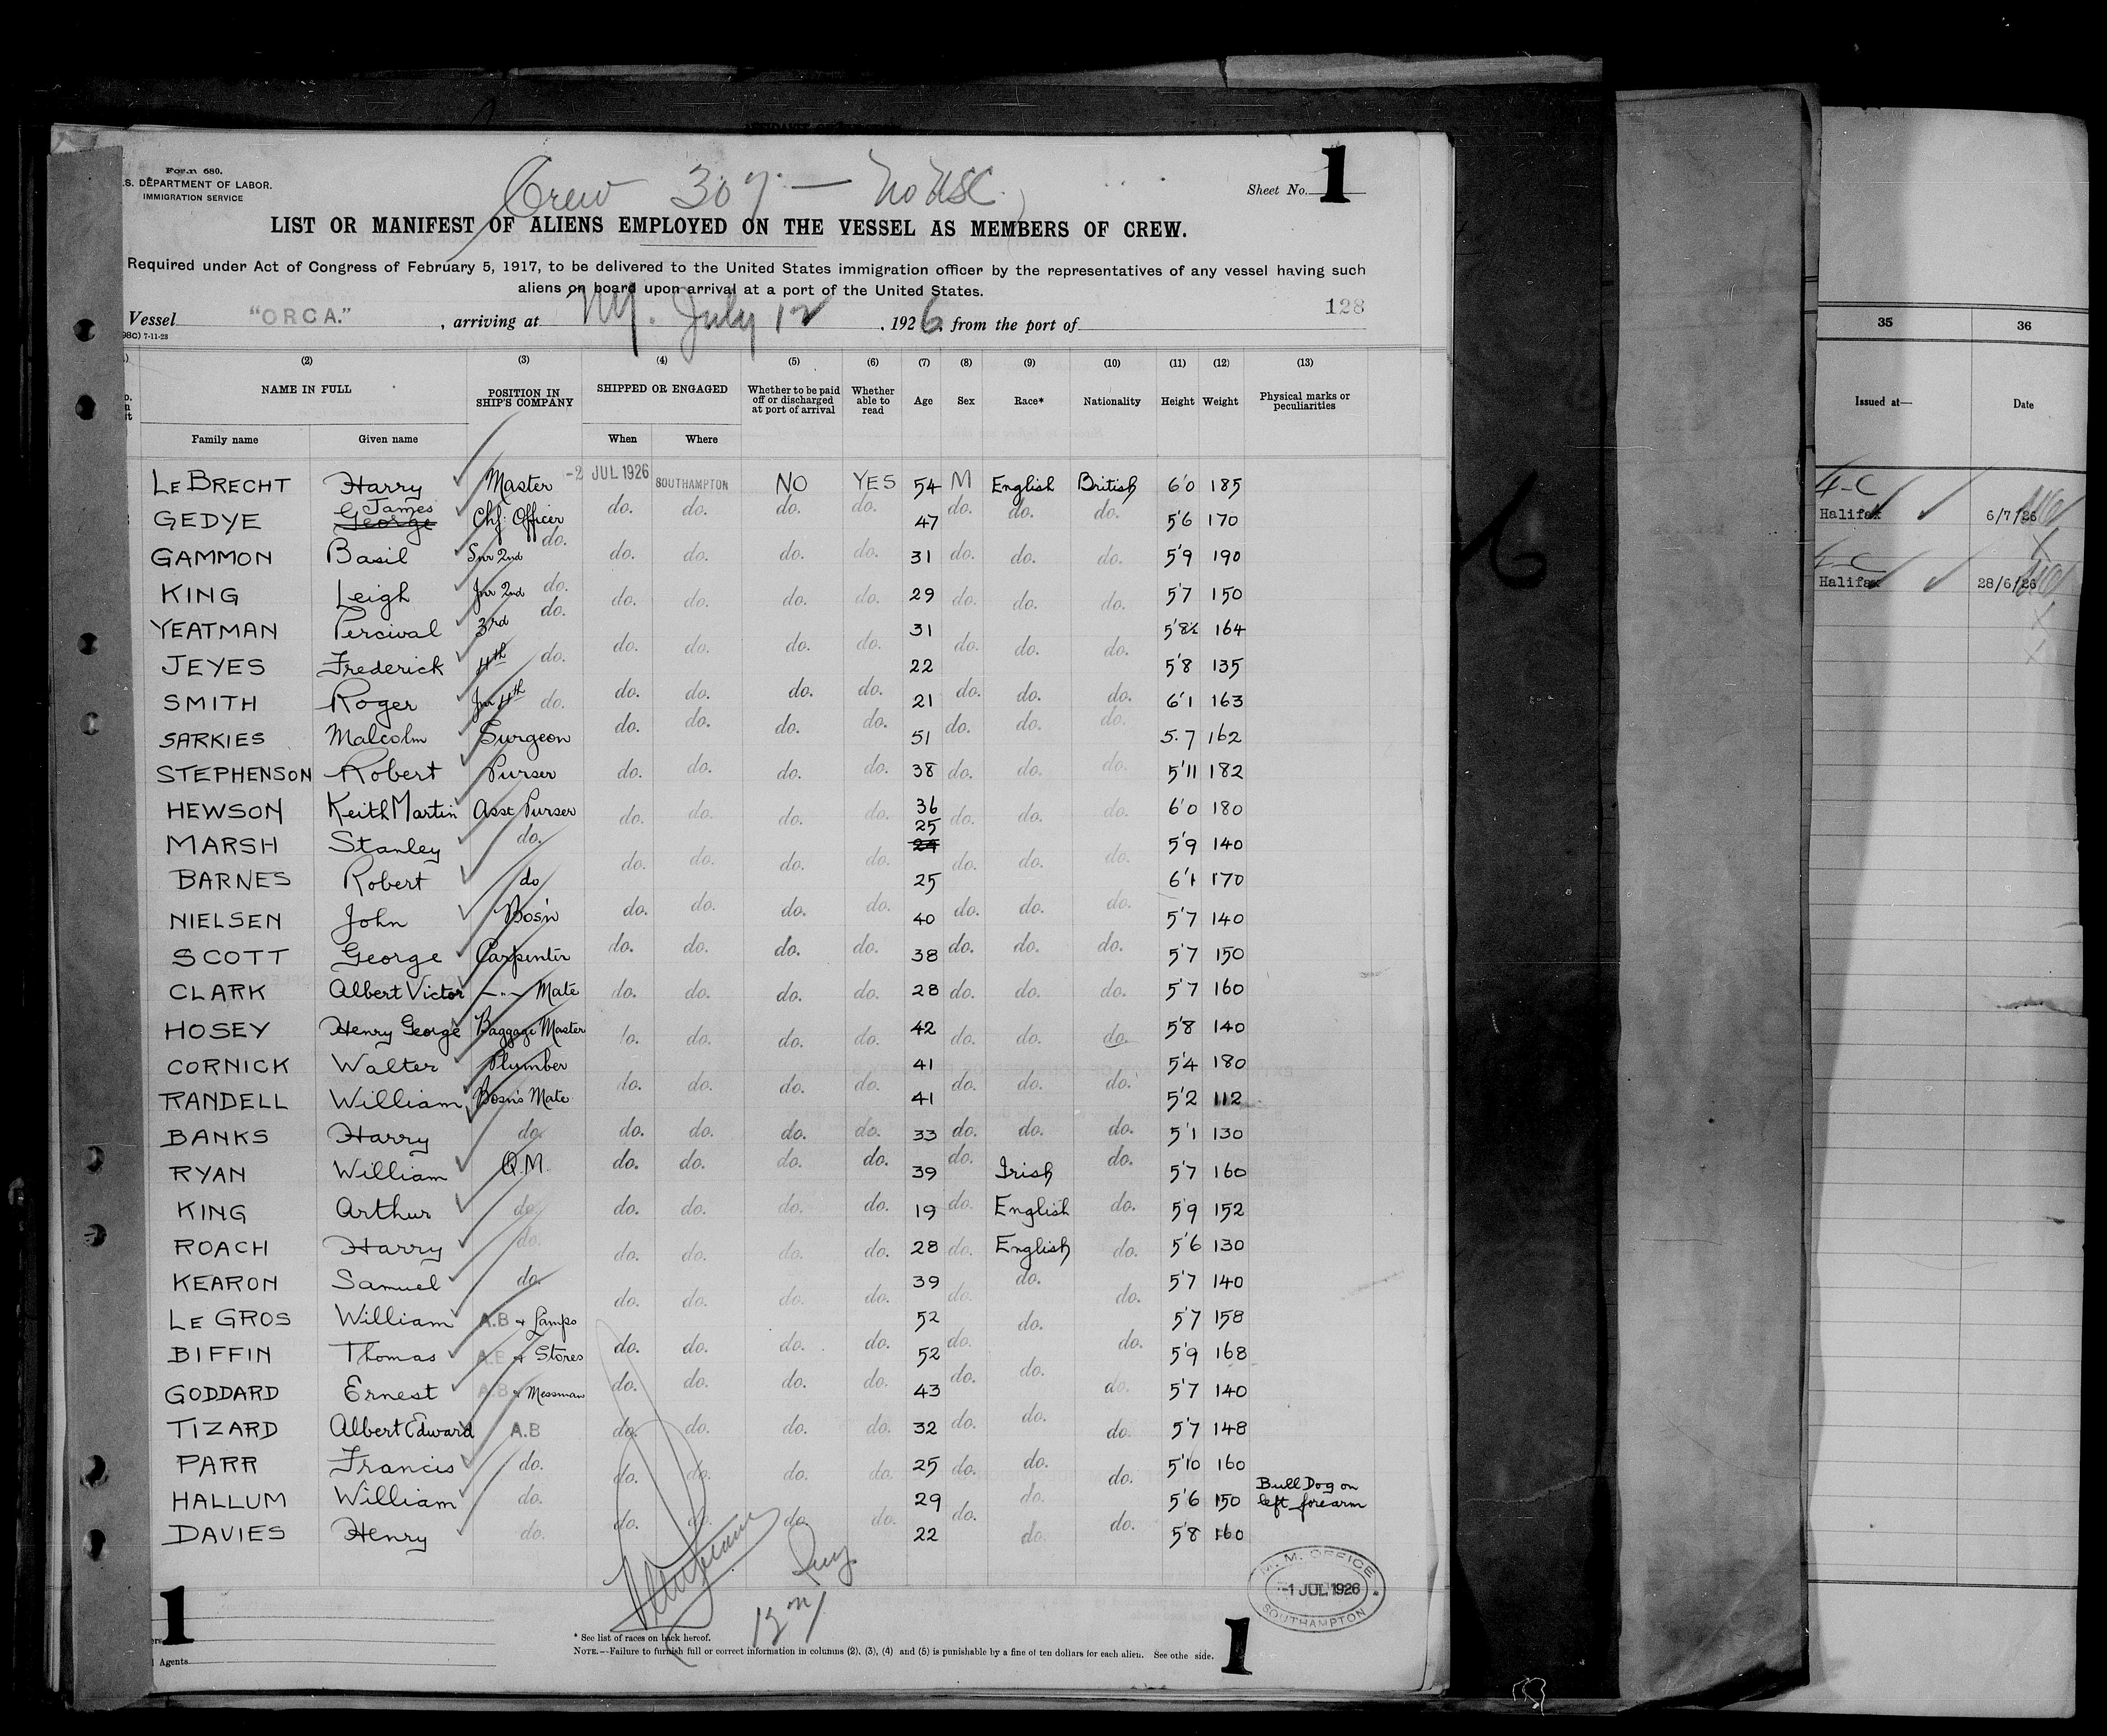 Form 680.
S. DEPARTMENT OF LABOR.
IMMIGRATION SERVICE
Crew 307 — No USC
Sheet No. 1
LIST OR MANIFEST OF ALIENS EMPLOYED ON THE VESSEL AS MEMBERS OF CREW.
Required under Act of Congress of February 5, 1917, to be delivered to the United States immigration officer by the representatives of any vessel having such
aliens on board upon arrival at a port of the United States.
128
Vessel "ORCA." , arriving at NY. July 12 , 1926, from the port of
98c) 7-11-23
(2) (3) (4) (5) (6) (7) (8) (9) (10) (11) (12) (13)
NAME IN FULL POSITION IN SHIP'S COMPANY SHIPPED OR ENGAGED Whether to be paid off or discharged at port of arrival Whether able to read Age Sex Race* Nationality Height Weight Physical marks or peculiarities
Family name Given name When Where
LE BRECHT Harry Master -2 JUL 1926 SOUTHAMPTON NO YES 54 M English British 6'0 185
GEDYE George James Chf: Officer do. do. do. do. 47 do. do. do. 5'6 170
GAMMON Basil Snr 2nd do. do. do. do. do. 31 do. do. do. 5'9 190
KING Leigh Jnr 2nd do. do. do. do. do. 29 do. do. do. 5'7 150
YEATMAN Percival 3rd do. do. do. do. do. 31 do. do. do. 5'8½ 164
JEYES Frederick 4th do. 22 5'8 135
SMITH Roger Jnr 4th do. do. do. do. do. 21 do. do. do. 6'1 163
SARKIES Malcolm Surgeon do. do. do. do. 51 do. do. do. 5.7 162
STEPHENSON Robert Purser do. do. do. do. 38 do. do. do. 5'11 182
HEWSON Keith Martin Asst Purser do. do. do. do. 36 do. do. do. 6'0 180
MARSH Stanley do. 25 24 5'9 140
BARNES Robert do do. do. do. do. 25 do. do. do. 6'1 170
NIELSEN John Bos'n do. do. do. do. 40 do. do. do. 5'7 140
SCOTT George Carpenter do. do. do. do. 38 do. do. do. 5'7 150
CLARK Albert Victor —"— Mate do. do. do. do. 28 do. do. do. 5'7 160
HOSEY Henry George Baggage Master do. do. do. do. 42 do. do. do. 5'8 140
CORNICK Walter Plumber 41 5'4 180
RANDELL William Bosn's Mate do. do. do. do. 41 do. do. do. 5'2 112
BANKS Harry do. do. do. do. do. 33 do. do. do. 5'1 130
RYAN William Q.M. do. do. do. do. 39 do. Irish do. 5'7 160
KING Arthur do. do. do. do. do. 19 do. English do. 5'9 152
ROACH Harry do. do. do. do. do. 28 do. English do. 5'6 130
KEARON Samuel do. 39 do. 5'7 140
LE GROS William A.B & Lamps do. do. do. do. 52 do. do. do. 5'7 158
BIFFIN Thomas A.B & Stores do. do. do. do. 52 do. do. 5'9 168
GODDARD Ernest A.B & Messman do. do. do. do. 43 do. do. do. 5'7 140
TIZARD Albert Edward A.B do. do. do. do. 32 do. do. do. 5'7 148
PARR Francis do. do. do. do. do. 25 do. do. do. 5'10 160
HALLUM William do. 29 do. 5'6 150 Bull Dog on left forearm
DAVIES Henry do. do. do. do. do. 22 do. do. do. 5'8 160
12
M. M. OFFICE
-1 JUL 1926
SOUTHAMPTON
1
Agents
* See list of races on back hereof.
NOTE.—Failure to furnish full or correct information in columns (2), (3), (4) and (5) is punishable by a fine of ten dollars for each alien. See othe side.
1
35 36
Issued at— Date
4-C
Halifax 6/7/26
4-C
Halifax 28/6/26